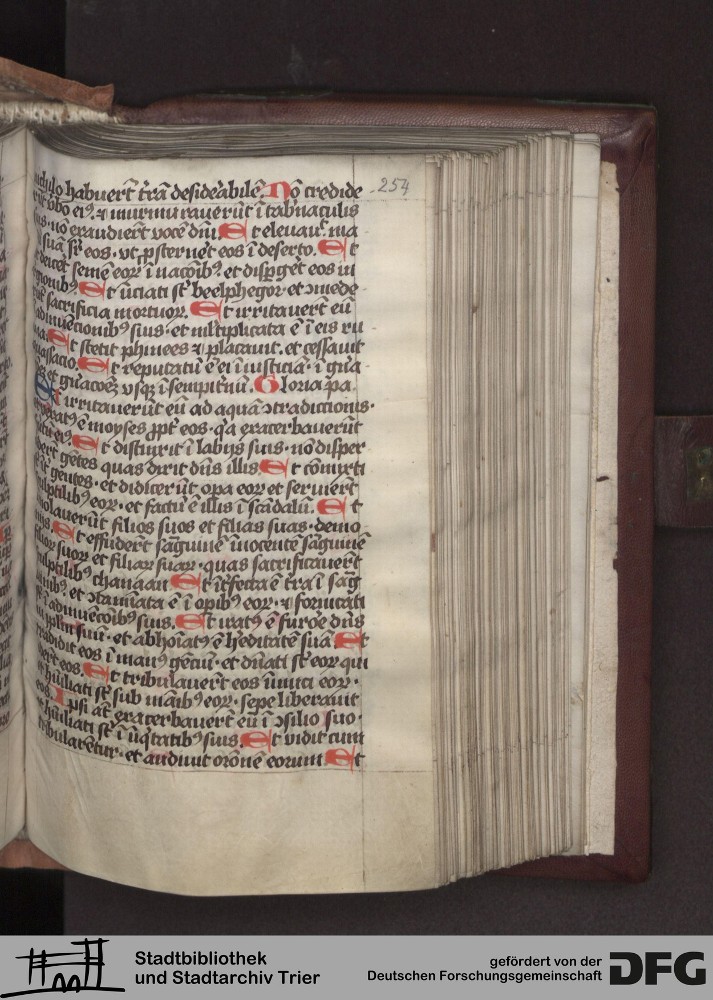 254
nichilo habuerūt t̄rā desideꝛabilē. Nō credide
rūt v̄bo eiꝰ. ⁊ murmurauerūt ī tab̄naculis
suis. nō exaudierūt vocē dn̄i Et eleuauit ma
suā sr̄ eos. vt ꝓsterneꝛet eos ī deserto. Et
vt deiceꝛet semē eoꝝ ī nacōibꝰ. et disꝑgeꝛet eos in
regionibꝰ. Et īiciati st̄ beelphegor. et ꝯmede
rūt sacrificia mortuoꝝ. Et irritauerūt eū
ī adinuēcionibꝰ suis. et mltiplicata ē ī eis ru
ina. Et stetit phinees ⁊ placauit. et cessauit
quassacio. Et reputatū ē ei ī iusticiā. ī gn̄a
et gn̄acōeꝫ vsqꝫ ī sempitnū. Gloria pa.
Et irritauerūt eū ad aquā ꝯtradictionis.
et vexatꝰ ē moyses ꝓpt̄ eos. q̄a exacerbauerūt
sp̄itū eiꝰ. Et distinxit ī labijs suis. nō disper
diderūt gētes quas dixit dn̄s illis Et cōmixti
st̄ īt̄ gentes. et didicerūt opa eoꝝ et seruierūt
sculptilibꝰ eoꝝ. et factū ē illis ī scādalū. Et
īmolauerūt filios suos et filias suas. demo
nijs. Et effuderūt sāguinē īnocentē sāguinē
filioꝝ suoꝝ et filiaꝝ suaꝝ. quas sacrificauerūt
sculptilibꝰ chanaan Et īt̄fecta ē t̄ra ī sāg
uinibꝰ. et ꝯtaīnata ē ī opibꝰ eoꝝ. ⁊ fornicati
st̄ ī adinuēcōibꝰ suis. Et iratꝰ ē furore dn̄s
in pl̄m suū. et abhoīatꝰ ē h̓editatē suā Et
tradidit eos ī manꝰ gētiū. et dn̄ati st̄ eoꝝ qui
oderūt eos. Et tribulauerūt eos inimici eoꝝ.
et hūiliati st̄ sub manibꝰ eoꝝ. sepe liberauit
eos. Ipsi aūt exacerbauerūt eū ī ꝯsilio suo.
et hūiliati st̄ ī iniq̄tatibꝰ suis. Et vidit cum
tribularētur. et audiuit or̄onē eorum Et
Stadtbibliothek
und Stadtarchiv Trier
gefördert von der
Deutschen Forschungsgemeinschaft
DFG